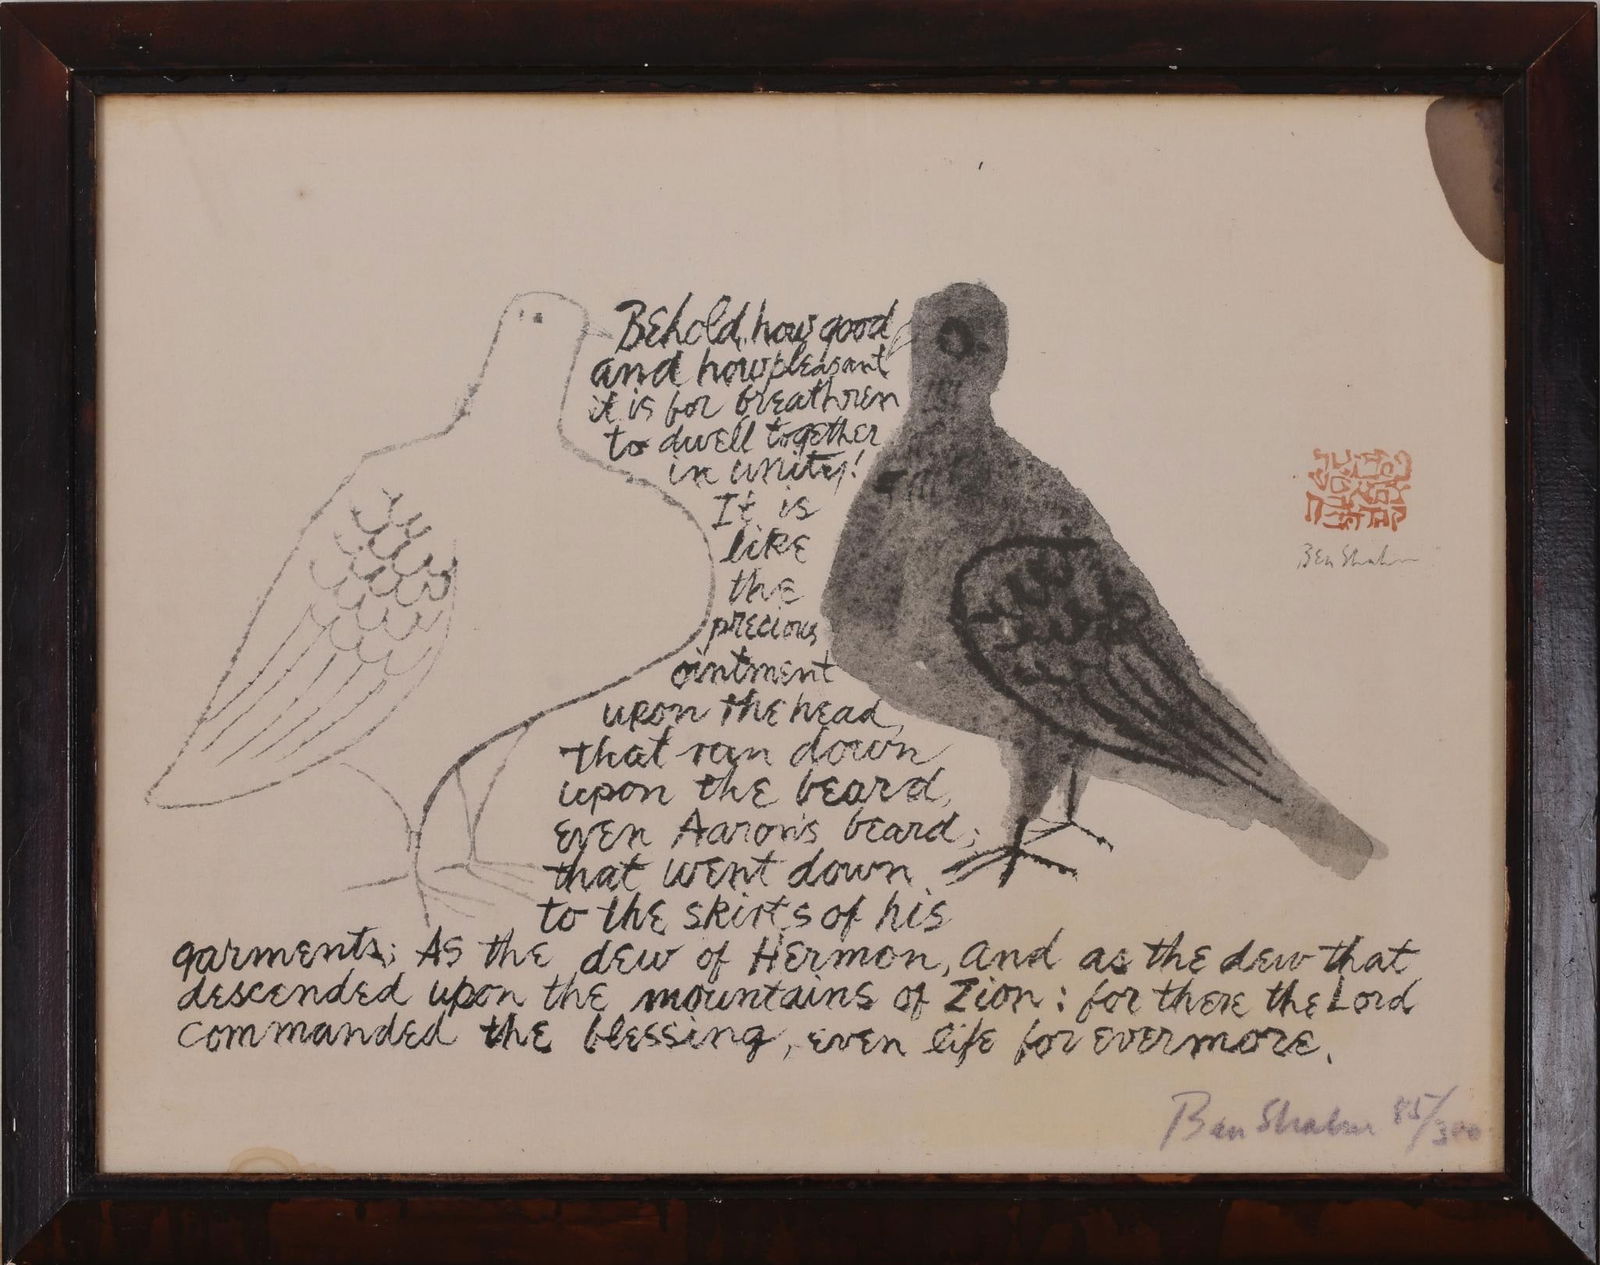 Behold, how good
and how pleasant
it is for breathren
to dwell together
in unity!
It is
like
the
precious
ointment
upon the head,
that ran down
upon the beard,
even Aaron's beard;
that went down
to the skirts of his
garments; As the dew of Hermon, and as the dew that
descended upon the mountains of Zion: for there the Lord
commanded the blessing, even life for evermore.
Ben Shahn
Ben Shahn 85/300